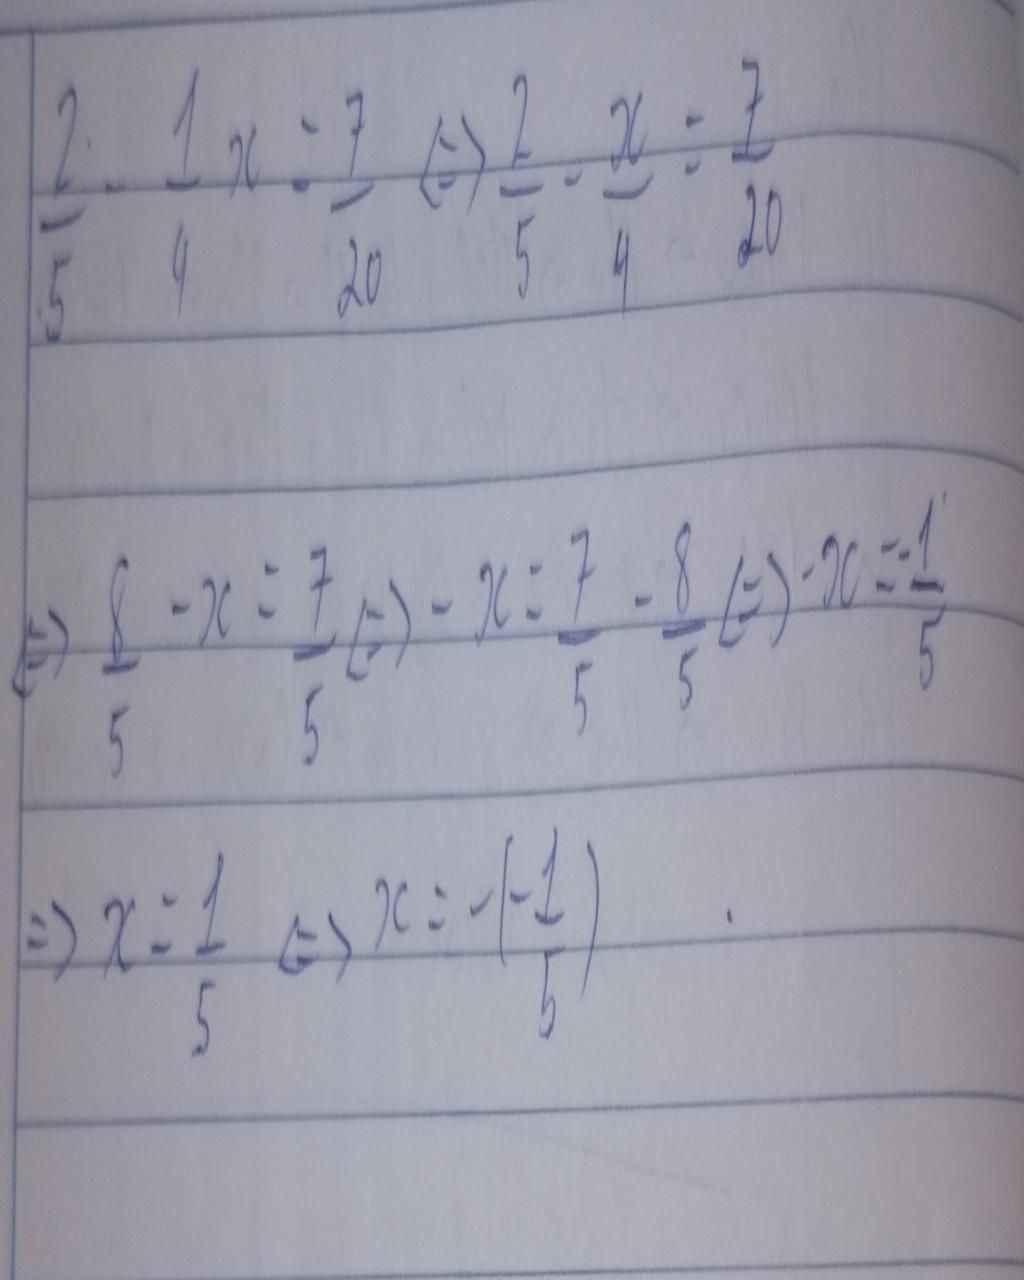 2/5 - 1/4 x = 7/20 (=) 2/5 - x/4 = 7/20
(=) 8/5 - x = 7/5 (=) - x = 7/5 - 8/5 (=) - x = -1/5
=) x = 1/5 (=) x = -(-1/5)